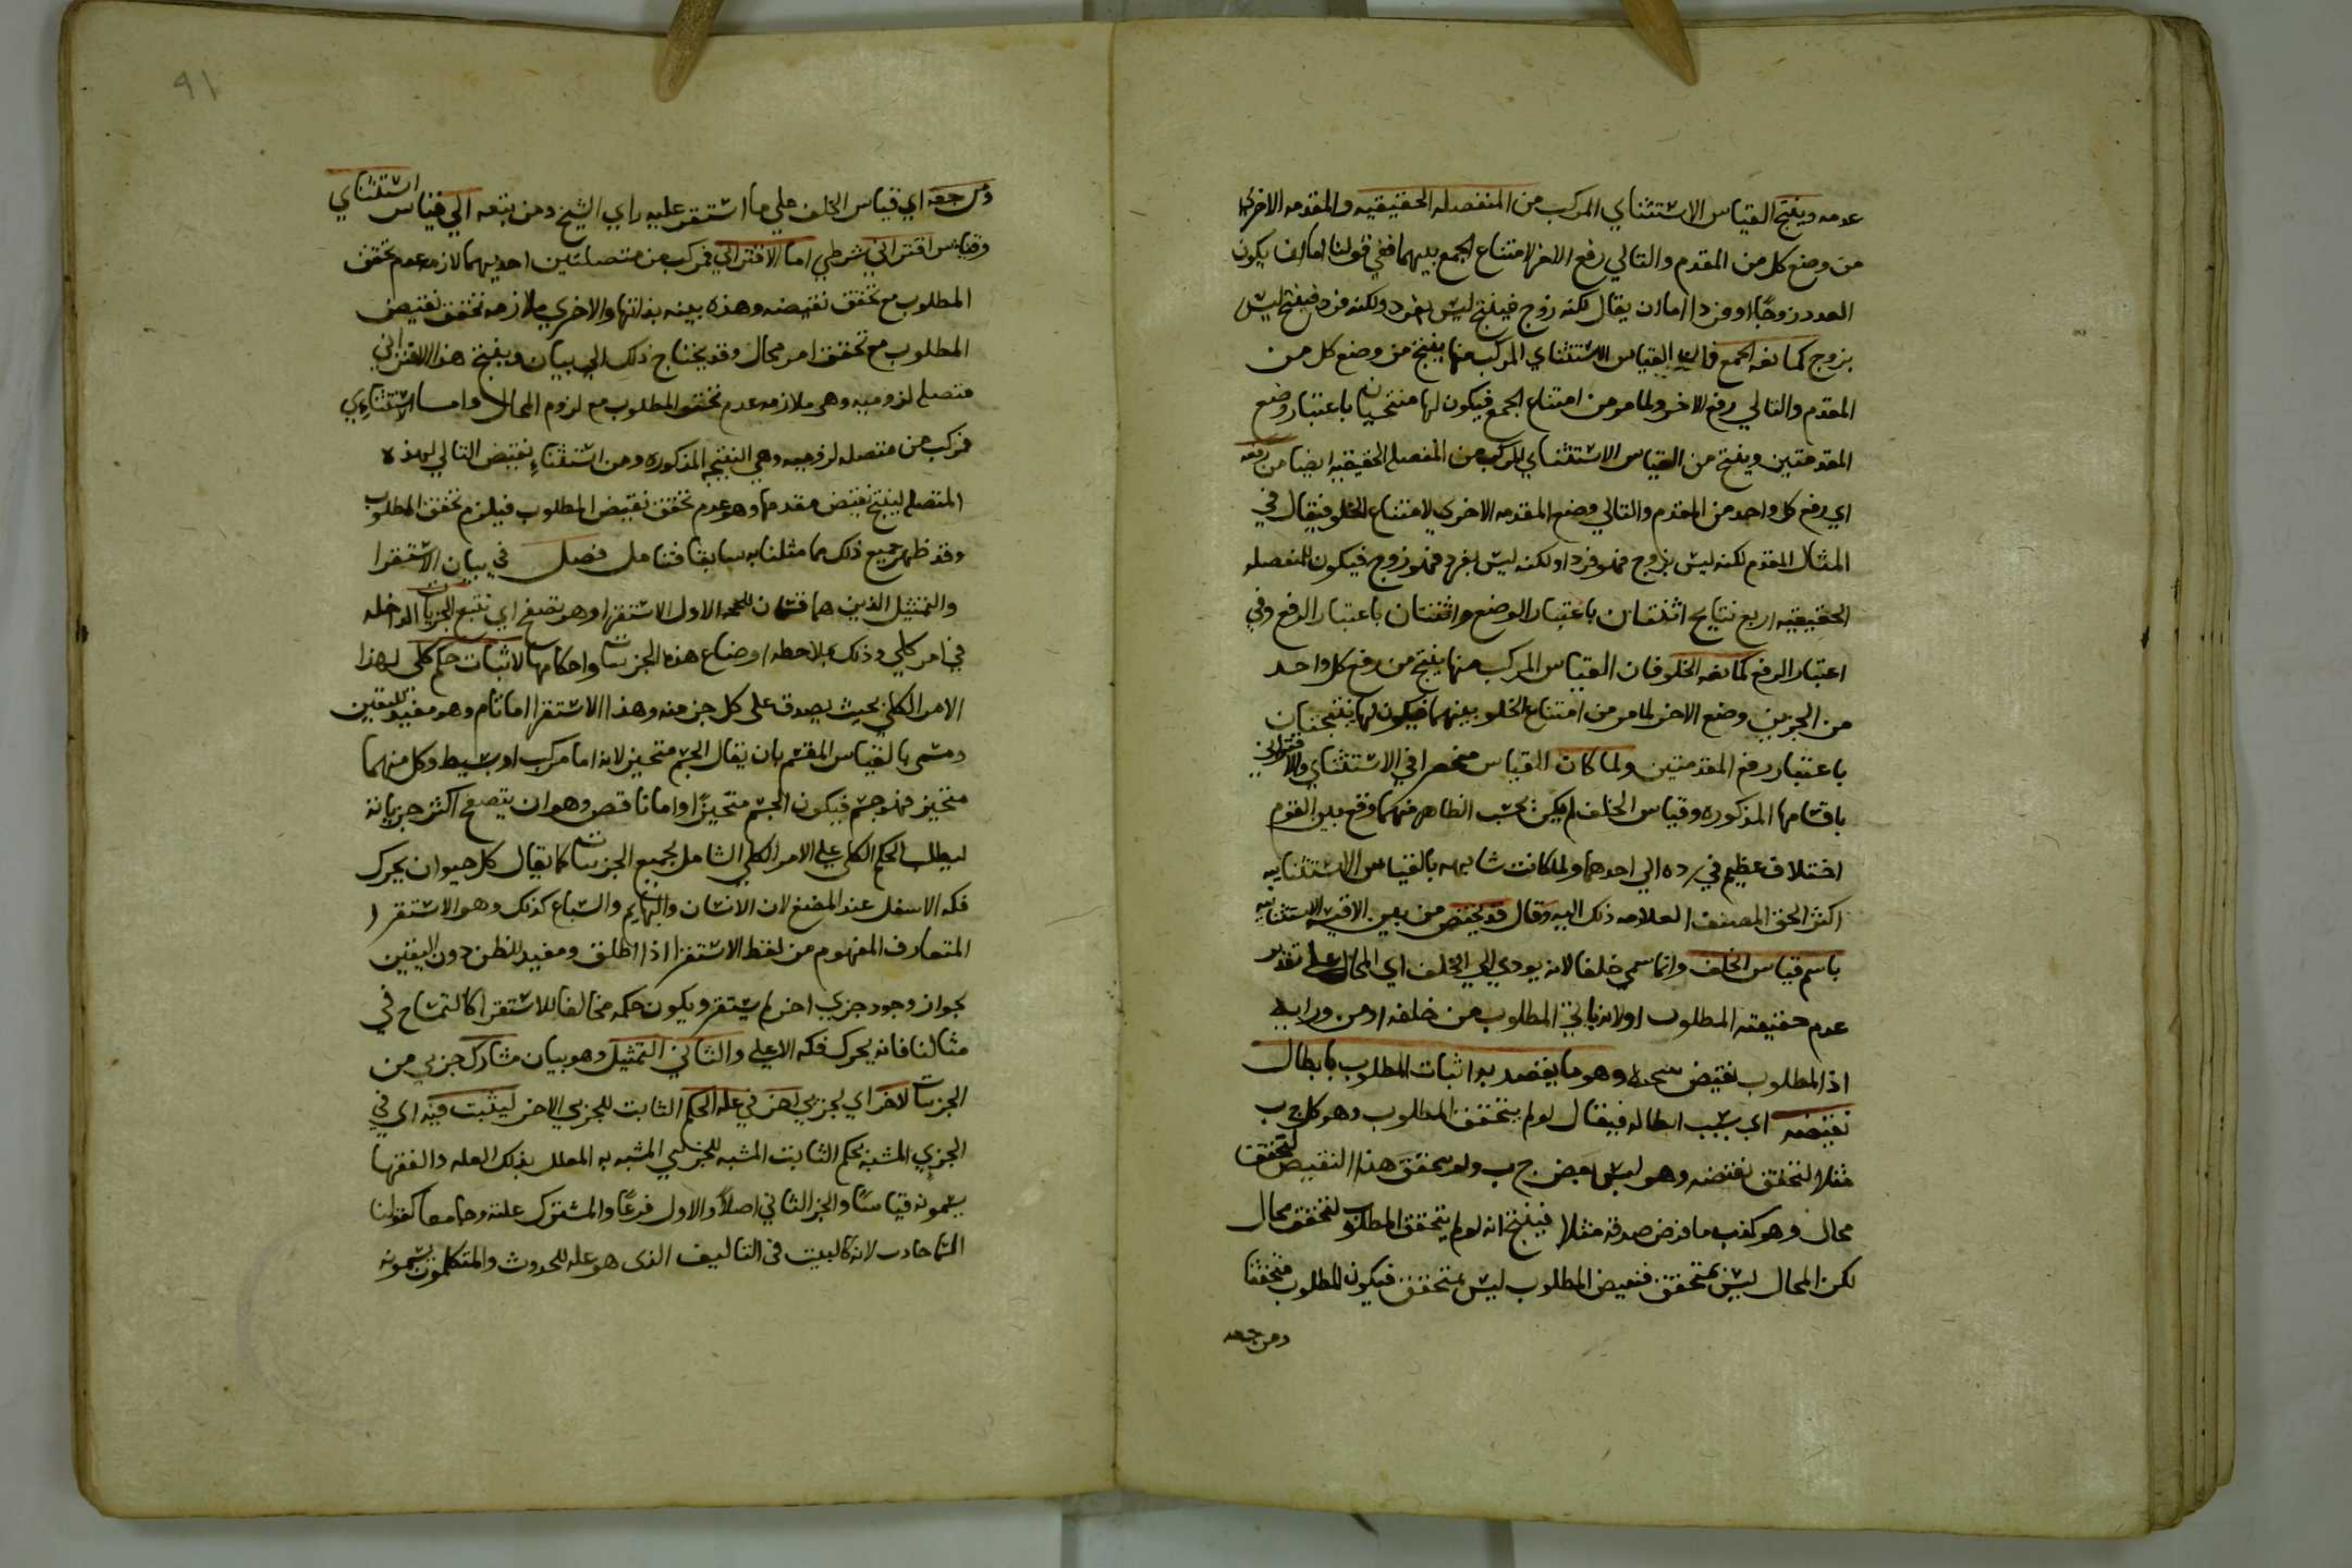 عدمه وينتج القياس الاستثناي المركب من المنفصله الحقيقيه والمقدمه الاخرى
من وضع كل من المقدم والتالي رفع الاخر لامتناع الجمع بينهما ففي قولنا اما ان يكون
العدد زوجًا او فردا اما ان يقال لكنه زوج فينتج ليس بفرد ولكنه فرد فينتج ليس
بزوج كمانعه الجمع فان القياس الاستثناي المركب منها ينتج من وضع كل من
المقدم والتالي رفع الاخر ولما مر من امتناع الجمع فيكون لها منتجتان باعتبار وضع
المقدمتين وينتج من القياس الاستثناي المركب من المنفصله الحقيقيه ايضا من رفعه
اي رفع كل واحد من المقدم والتالي وضع المقدمه الاخري لامتناع الخلو فيقال في
المثال المقدم لكنه ليس بزوج فهو فرد او لكنه ليس بفرد فهو زوج فيكون للمنفصله
الحقيقيه اربع نتايج اثنتان باعتبار الوضع واثنتان باعتبار الرفع وفي
اعتبار الرفع كمانعه الخلو فان القياس المركب منها ينتج من رفع كل واحد
من الجزين وضع الاخر لما مر من امتناع الخلو بينهما فيكون لها نتيجتان
باعتبار رفع المقدمتين ولما كان القياس منحصرا في الاستثناي والاقتراني
باقسامها المذكوره وقياس الخلف لم يكن بحسب الظاهر منهما وقع بين القوم
اختلاف عظيم في رده الي احدهما ولما كانت مشابهته بالقياس الاستثنائيه
اكثر الحق المصنف العلامه ذلك اليه وقال قد يختص من بين الاقيسه الاستثنائيه
باسم قياس الخلف وانما سمي خلفا لانه يودي الي الخلف اي المحال علي تقدير
عدم حقيقته المطلوب اولانه ياتي المطلوب من خلفه او من ورايه
اذ المطلوب نقيض وهو ما يقصد به اثبات المطلوب بابطال
نقيضه اي بسبب ابطاله فيقال لو لم يتحقق المطلوب وهو كل ج ب
مثلا لتحقق نقيضه وهو ليس بعض ج ب ولو تحقق هذا النقيض لتحقق
محال وهو كذب ما فرض صدقه مثلا فينتج انه لو لم يتحقق المطلوب لتحقق محال
لكن المحال ليس بمتحقق فنقيض المطلوب ليس بمتحقق فيكون المطلوب متحققا
ومرجعه
٩١
ومرجعه اي قياس الخلف علي ما استقر عليه راي الشيخ ومن تبعه الي قياس استثناي
وقياس اقتراني شرطي اما الاقتراني فمركب من متصلتين احديهما لازمه عدم تحقق
المطلوب مع تحقق نقيضه وهذه بينه بذاتها والاخري ملازمه تحقق نقيض
المطلوب مع تحقق امر محال وقد يحتاج ذلك الي بيان وينتج هذا الاقتراني
متصله لزوميه وهي ملازمه عدم تحقق المطلوب مع لزوم المحال واما الاستثنائي
فمركب من متصله لزوميه وهي النتيجه المذكوره ومن استثناء نقيض التالي لهذه
المتصله لينتج نقيض مقدمها وهو عدم تحقق نقيض المطلوب فيلزم تحقق المطلوب
وقد ظهر جميع ذلك مما مثلنا به سابقا فتامل فصل في بيان الاستقرا
والتمثيل الذين هما قسمان للحجه الاول الاستقرا وهو تصفح اي تتبع الجزيات الداخله
في امر كلي وذلك بملاحظه اوضاع هذه الجزيات واحكامها لاثبات حكم كلي لهذا
الامر الكلي بحيث يصدق علي كل جز منه وهذا الاستقرا اما تام وهو مفيد لليقين
ومسمي بالقياس المقسم بان يقال الجسم متحيز لانه اما مركب او بسيط وكل منهما
متحيز فهو جسم فيكون الجسم متحيزًا واما ناقص وهو ان يتصفح اكثر جزياته
ليطلب الحكم الكلي علي الامر الكلي الشامل لجميع الجزيات كما يقال كل حيوان يحرك
فكه الاسفل عند المضغ لان الانسان والبهايم والسباع كذلك وهو الاستقرا
المتعارف المفهوم من لفظ الاستقرا اذا اطلق ومفيد للظن دون اليقين
بجواز وجود جزيي اخر لم يستقر ويكون حكمه مخالفا للاستقرا كالتمساح في
مثالنا فانه يحرك فكه الاعلي والثاني التمثيل وهو بيان مشاركه جزيي من
الجزيات لاخر اي لجزيي اخر في عله الحكم الثابت للجزيي الاخر ليثبت فيه اي في
الجزيي المشبه بحكم الثابت المشبه للجزيي المشبه به المعلل بتلك العله والفقها
يسمونه قياسًا والجز الثاني اصلاً والاول فرعًا والمشترك علته وجامعا كقولنا
السما حادث لانه كالبيت في التاليف الذي هو عله للحدوث والمتكلمون يسمونه